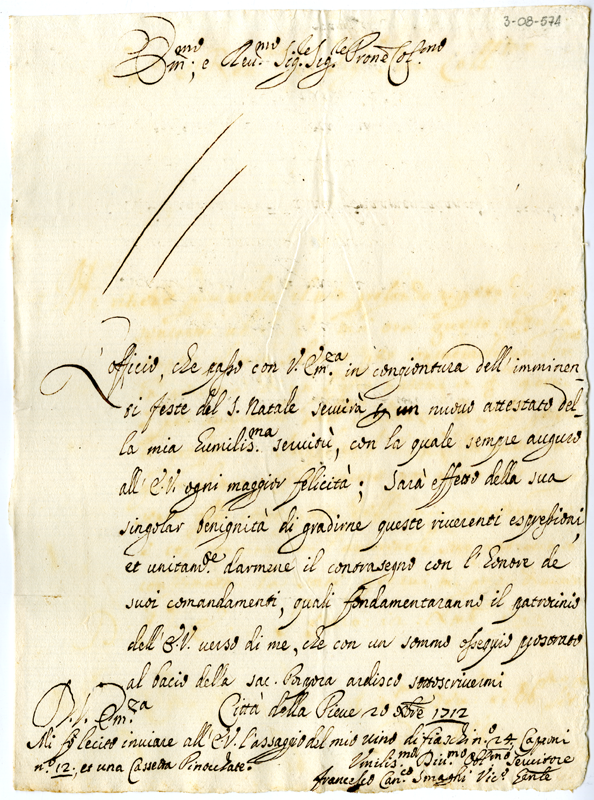 3-08-574
Em̃.mo, e Reu.mo Sig.le Sig.le Prone Col.mo
L'officio, che passo con V. Em̃.za in congiontura dell'imminen-
ti feste del S. Natale seruirà p un nuouo attestato del-
la mia Humilis.ma seruitù, con la quale sempre auguro
all'E.V. ogni maggior felicità; Sarà effetto della sua
singolar benignità di gradirne queste riuerenti espressioni,
et unitam.te darmene il contrasegno con l'Honore de
suoi comandamenti, quali fondamentaranno il patrocinio
dell'E.V. verso di me, che con un sommo ossequio prostrato
al bacio della sac. Porpora ardisco sottoscriuermi
D. V. Em̃.za Città della Pieue 20 Xbre 1712
Mi fo lecito inuiare all'E.V. l'assaggio del mio uino di fiaschi n.o 24, Caponi
n.o 12, et una Cassetta Pinocchate.
Vmilis.mo Diu.mo Obl.mo Seruitore
Francesco Can.co Smaghi Vic.o Gnle